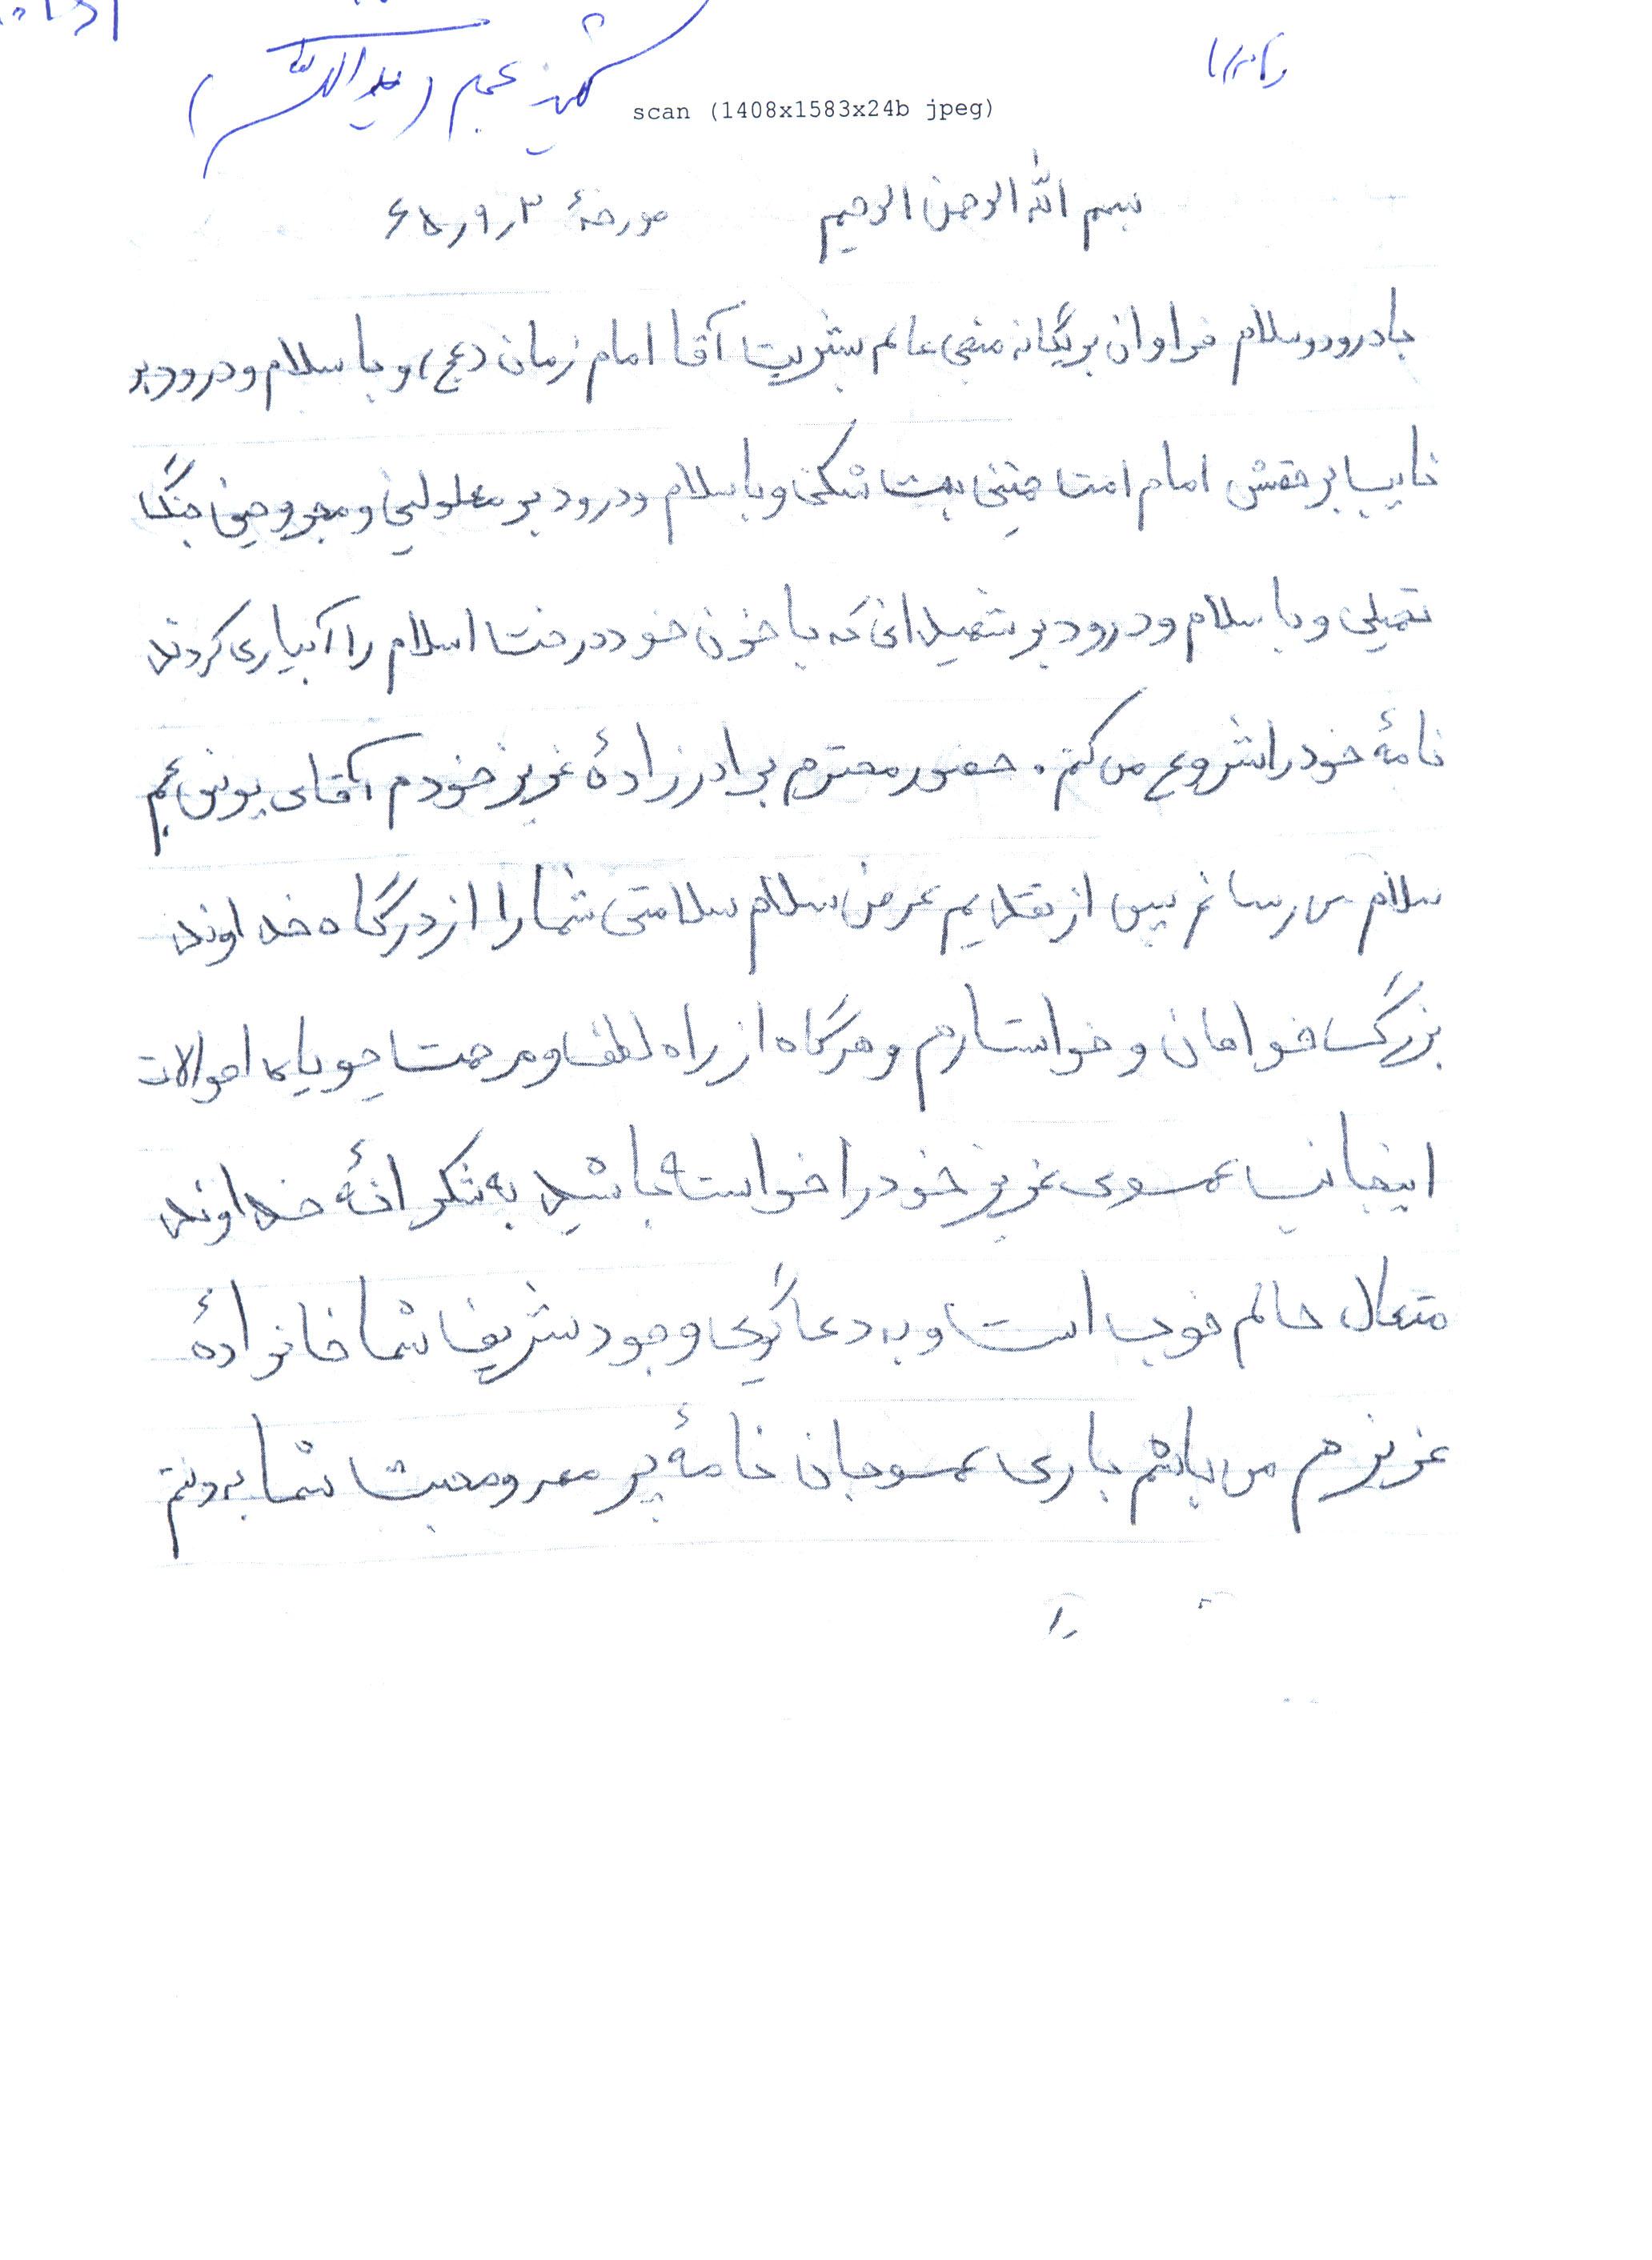 شهید عجم (یدالله)
scan (1408x1583x24b jpeg)
بسم الله الرحمن الرحیم مورخهٔ ۶۵٫۹٫۳
با درود و سلام فراوان بر یگانه منجی عالم بشریت آقا امام زمان (عج) و با سلام و درود بر
نایب بر حقش امام امت خمینی بت شکن و با سلام و درود بر معلولین و مجروحین جنگ
تحمیلی و با سلام و درود بر شهیدانی که با خون خود درخت اسلام را آبیاری کردند
نامهٔ خود را شروع می کنم . حضور محترم برادرزادهٔ عزیز خودم آقای یونس عجم
سلام می رسانم پس از تقدیم عرض سلام سلامتی شما را از درگاه خداوند
بزرگ خواهان و خواستارم و هرگاه از راه لطف و مرحمت جویای احوالات
اینجانب عموی عزیز خود را خواسته باشید به شکرانهٔ خداوند
متعال حالم خوب است و به دعا گوی وجود شریف شما خانوادهٔ
عزیزم می باشم باری عموجان نامهٔ پر مهر و محبت شما بدستم